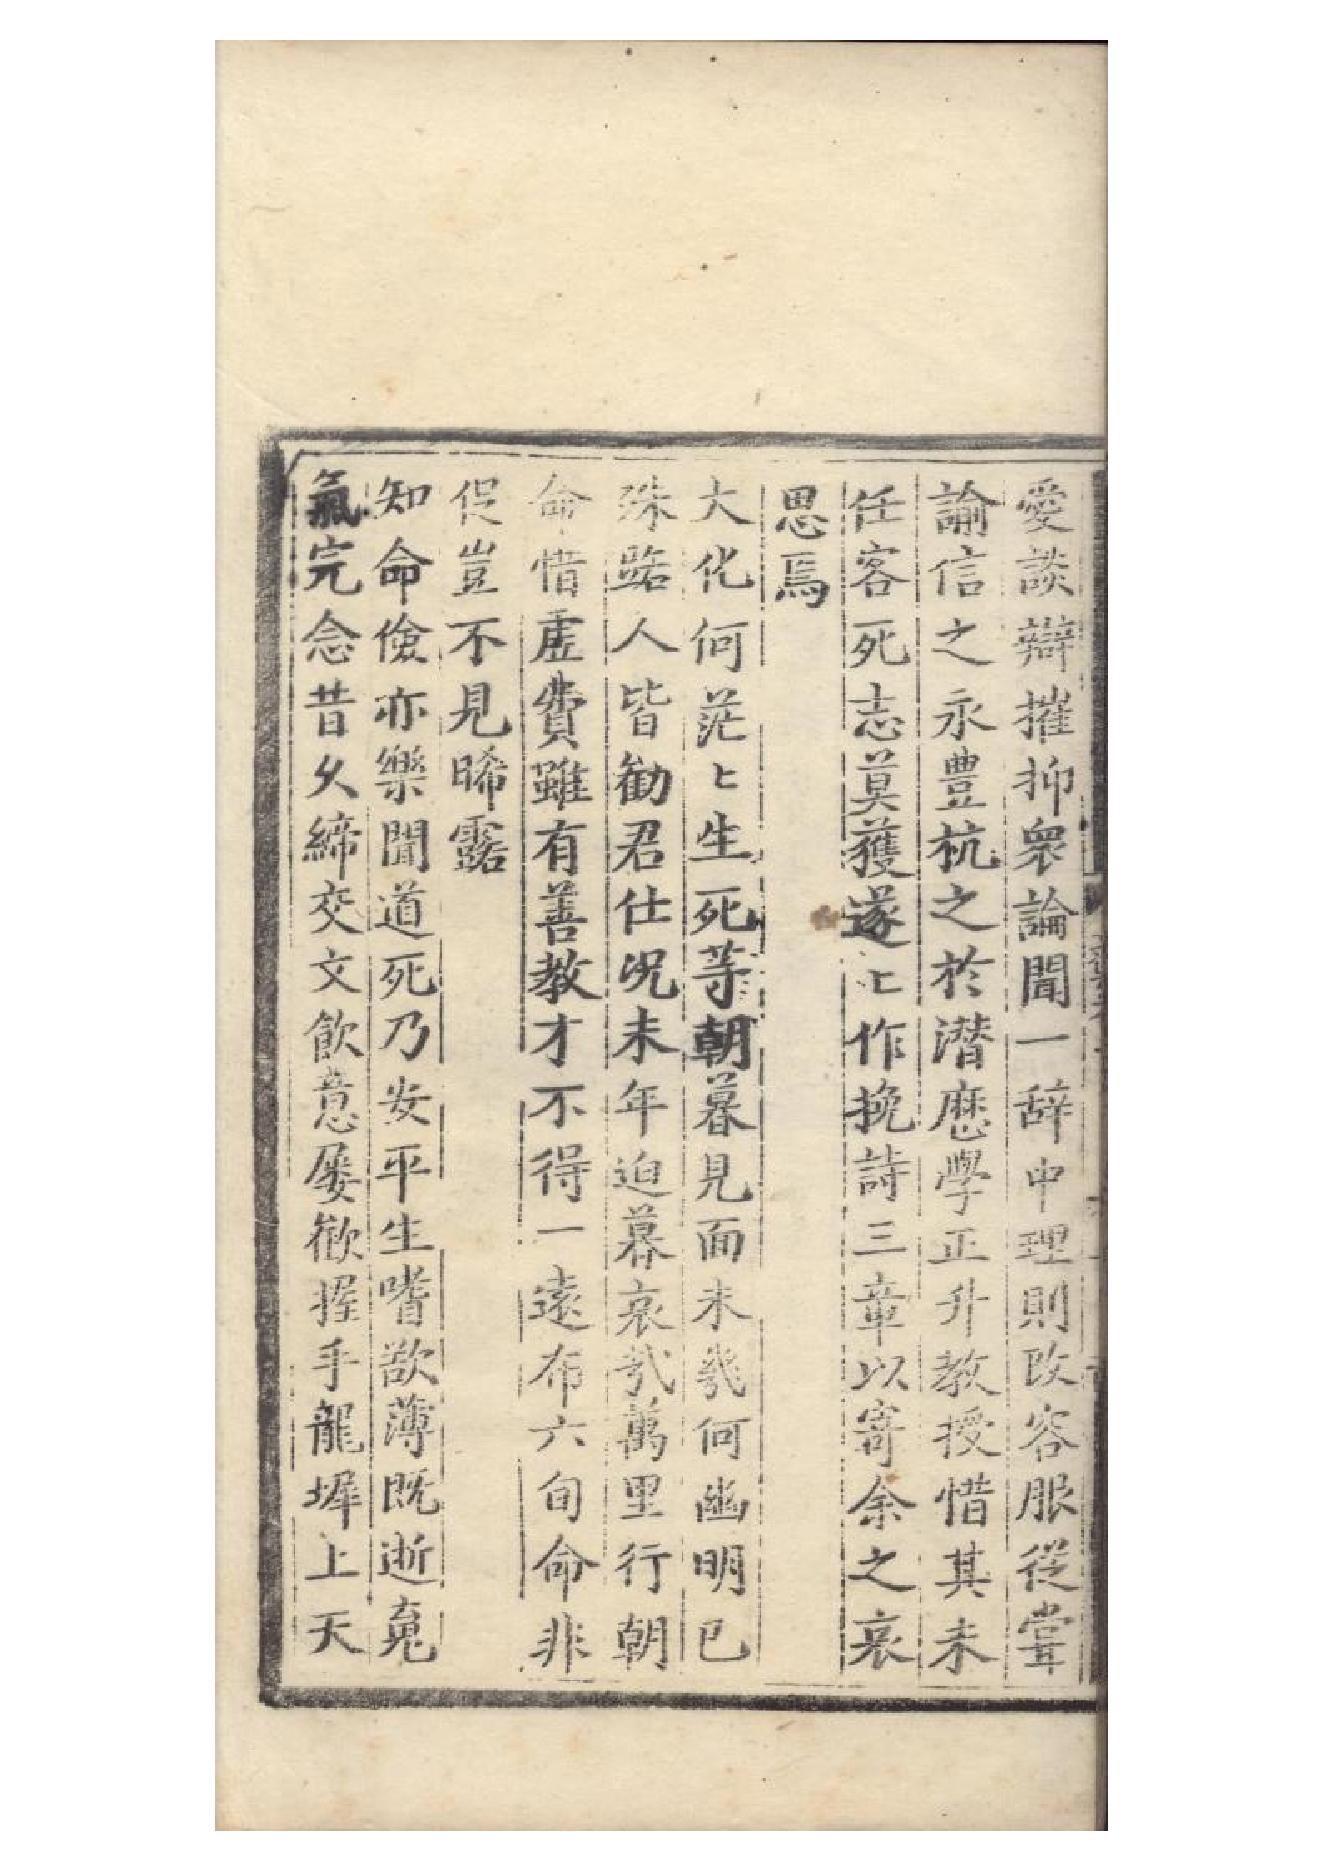 愛談辯摧抑衆論聞一辞中理則改容服從嘗
諭信之永豊杭之於潜歷學正升教授惜其未
任客死志莫獲遂ヒ作挽詩三章以寄余之哀
思焉
大化何茫ヒ生死等朝暮見面未幾何幽明已
殊路人皆勧君仕况未年迫暮哀哉萬里行朝
命惜虛費雖有善教才不得一遠布六旬命非
促豈不見晞露
知命儉亦樂聞道死乃安平生嗜欲薄既逝䰟
氣完念昔久締交文飲意屡歓握手龍墀上天